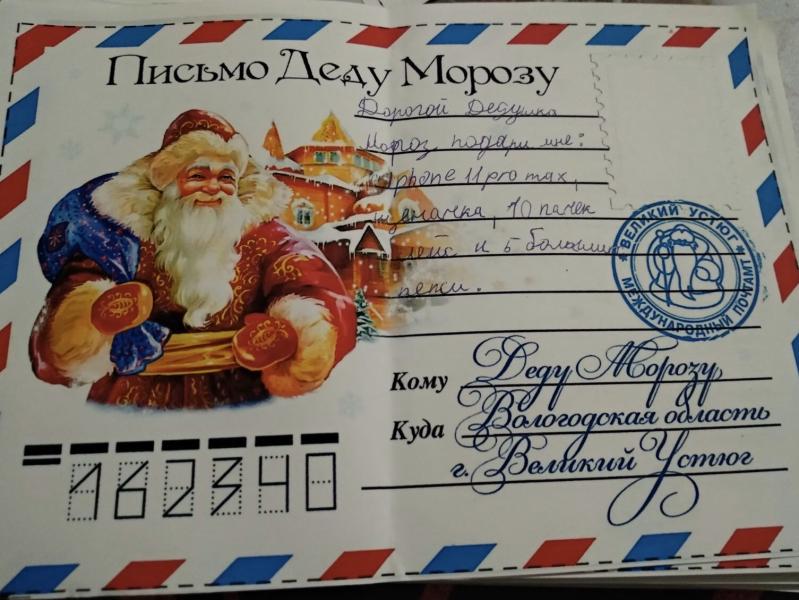 Письмо Деду Морозу
Дорогой Дедушка
Мороз подари мне:
iphone 11 pro max,
щеночка, 10 пачек
лейс и 5 больших
пепси.
ВЕЛИКИЙ УСТЮГ
МЕЖДУНАРОДНЫЙ ПОЧТАМТ
Кому Деду Морозу
Куда Вологодская область
г. Великий Устюг
162340